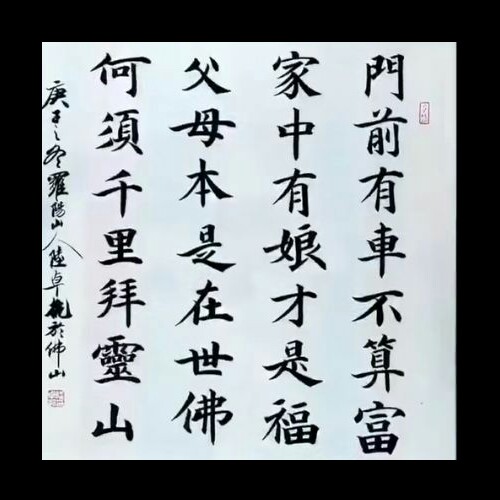 門前有車不算富
家中有娘才是福
父母本是在世佛
何須千里拜靈山
庚子之冬羅陽山人陸卓於佛山